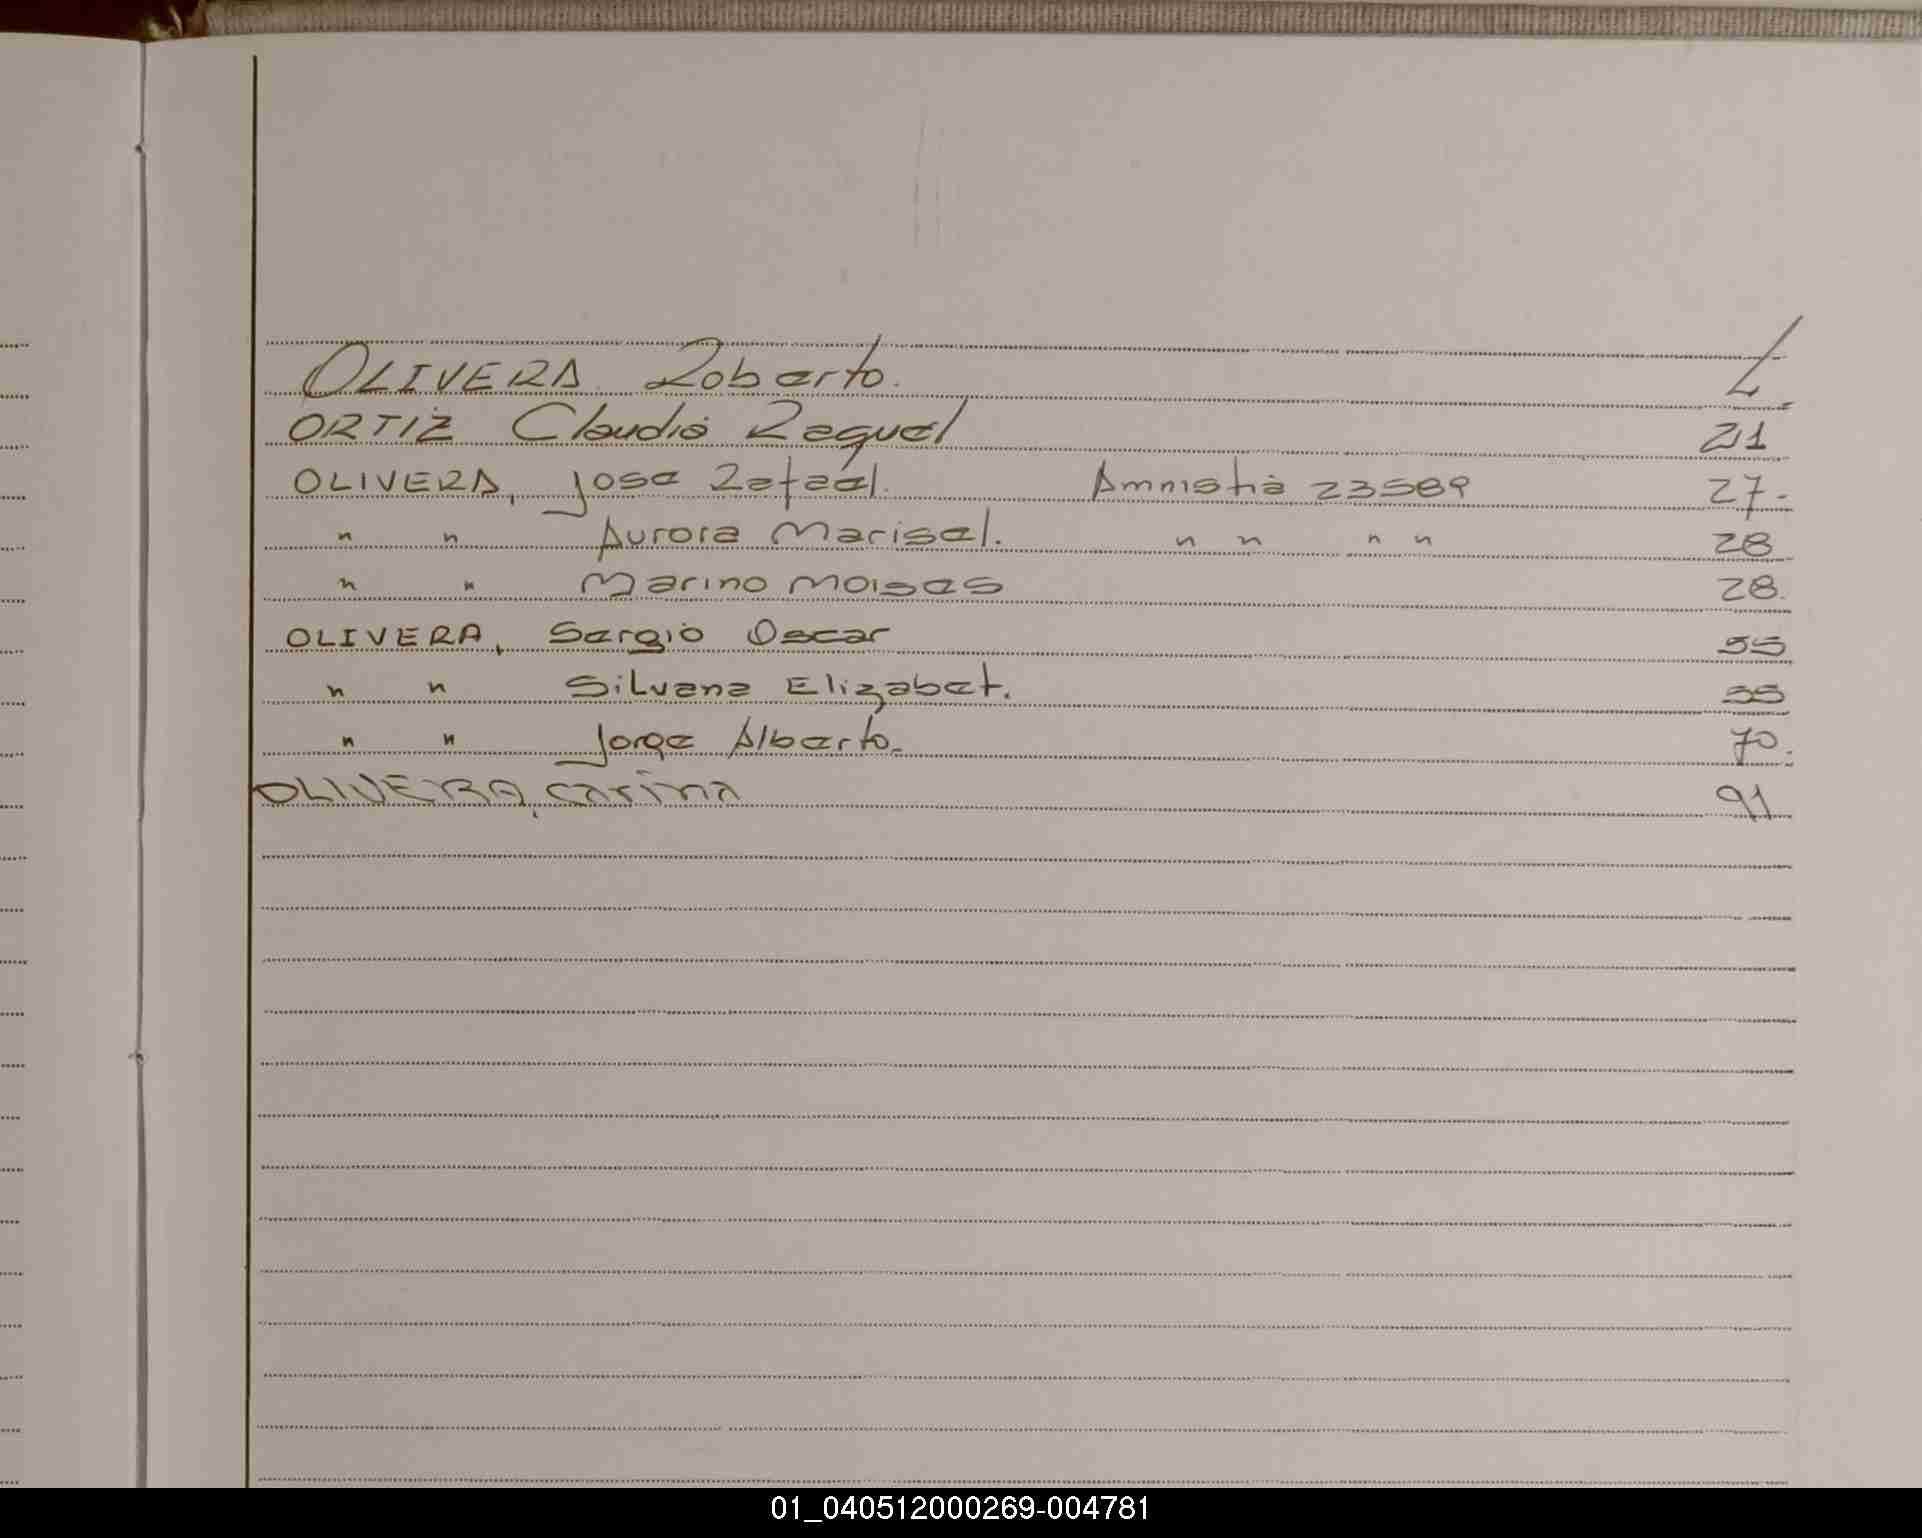 OLIVERA Roberto.
ORTIZ Claudia Raquel 21
OLIVERA, Jose Rafael. Amnistia 23589 27.
" " Aurora Marisel. " " " " 28
" " Marino Moises 28.
OLIVERA, Sergio Oscar 55
" " Silvana Elizabet. 55
" " Jorge Alberto. 70.
OLIVERA, Carina 91
01_040512000269-004781